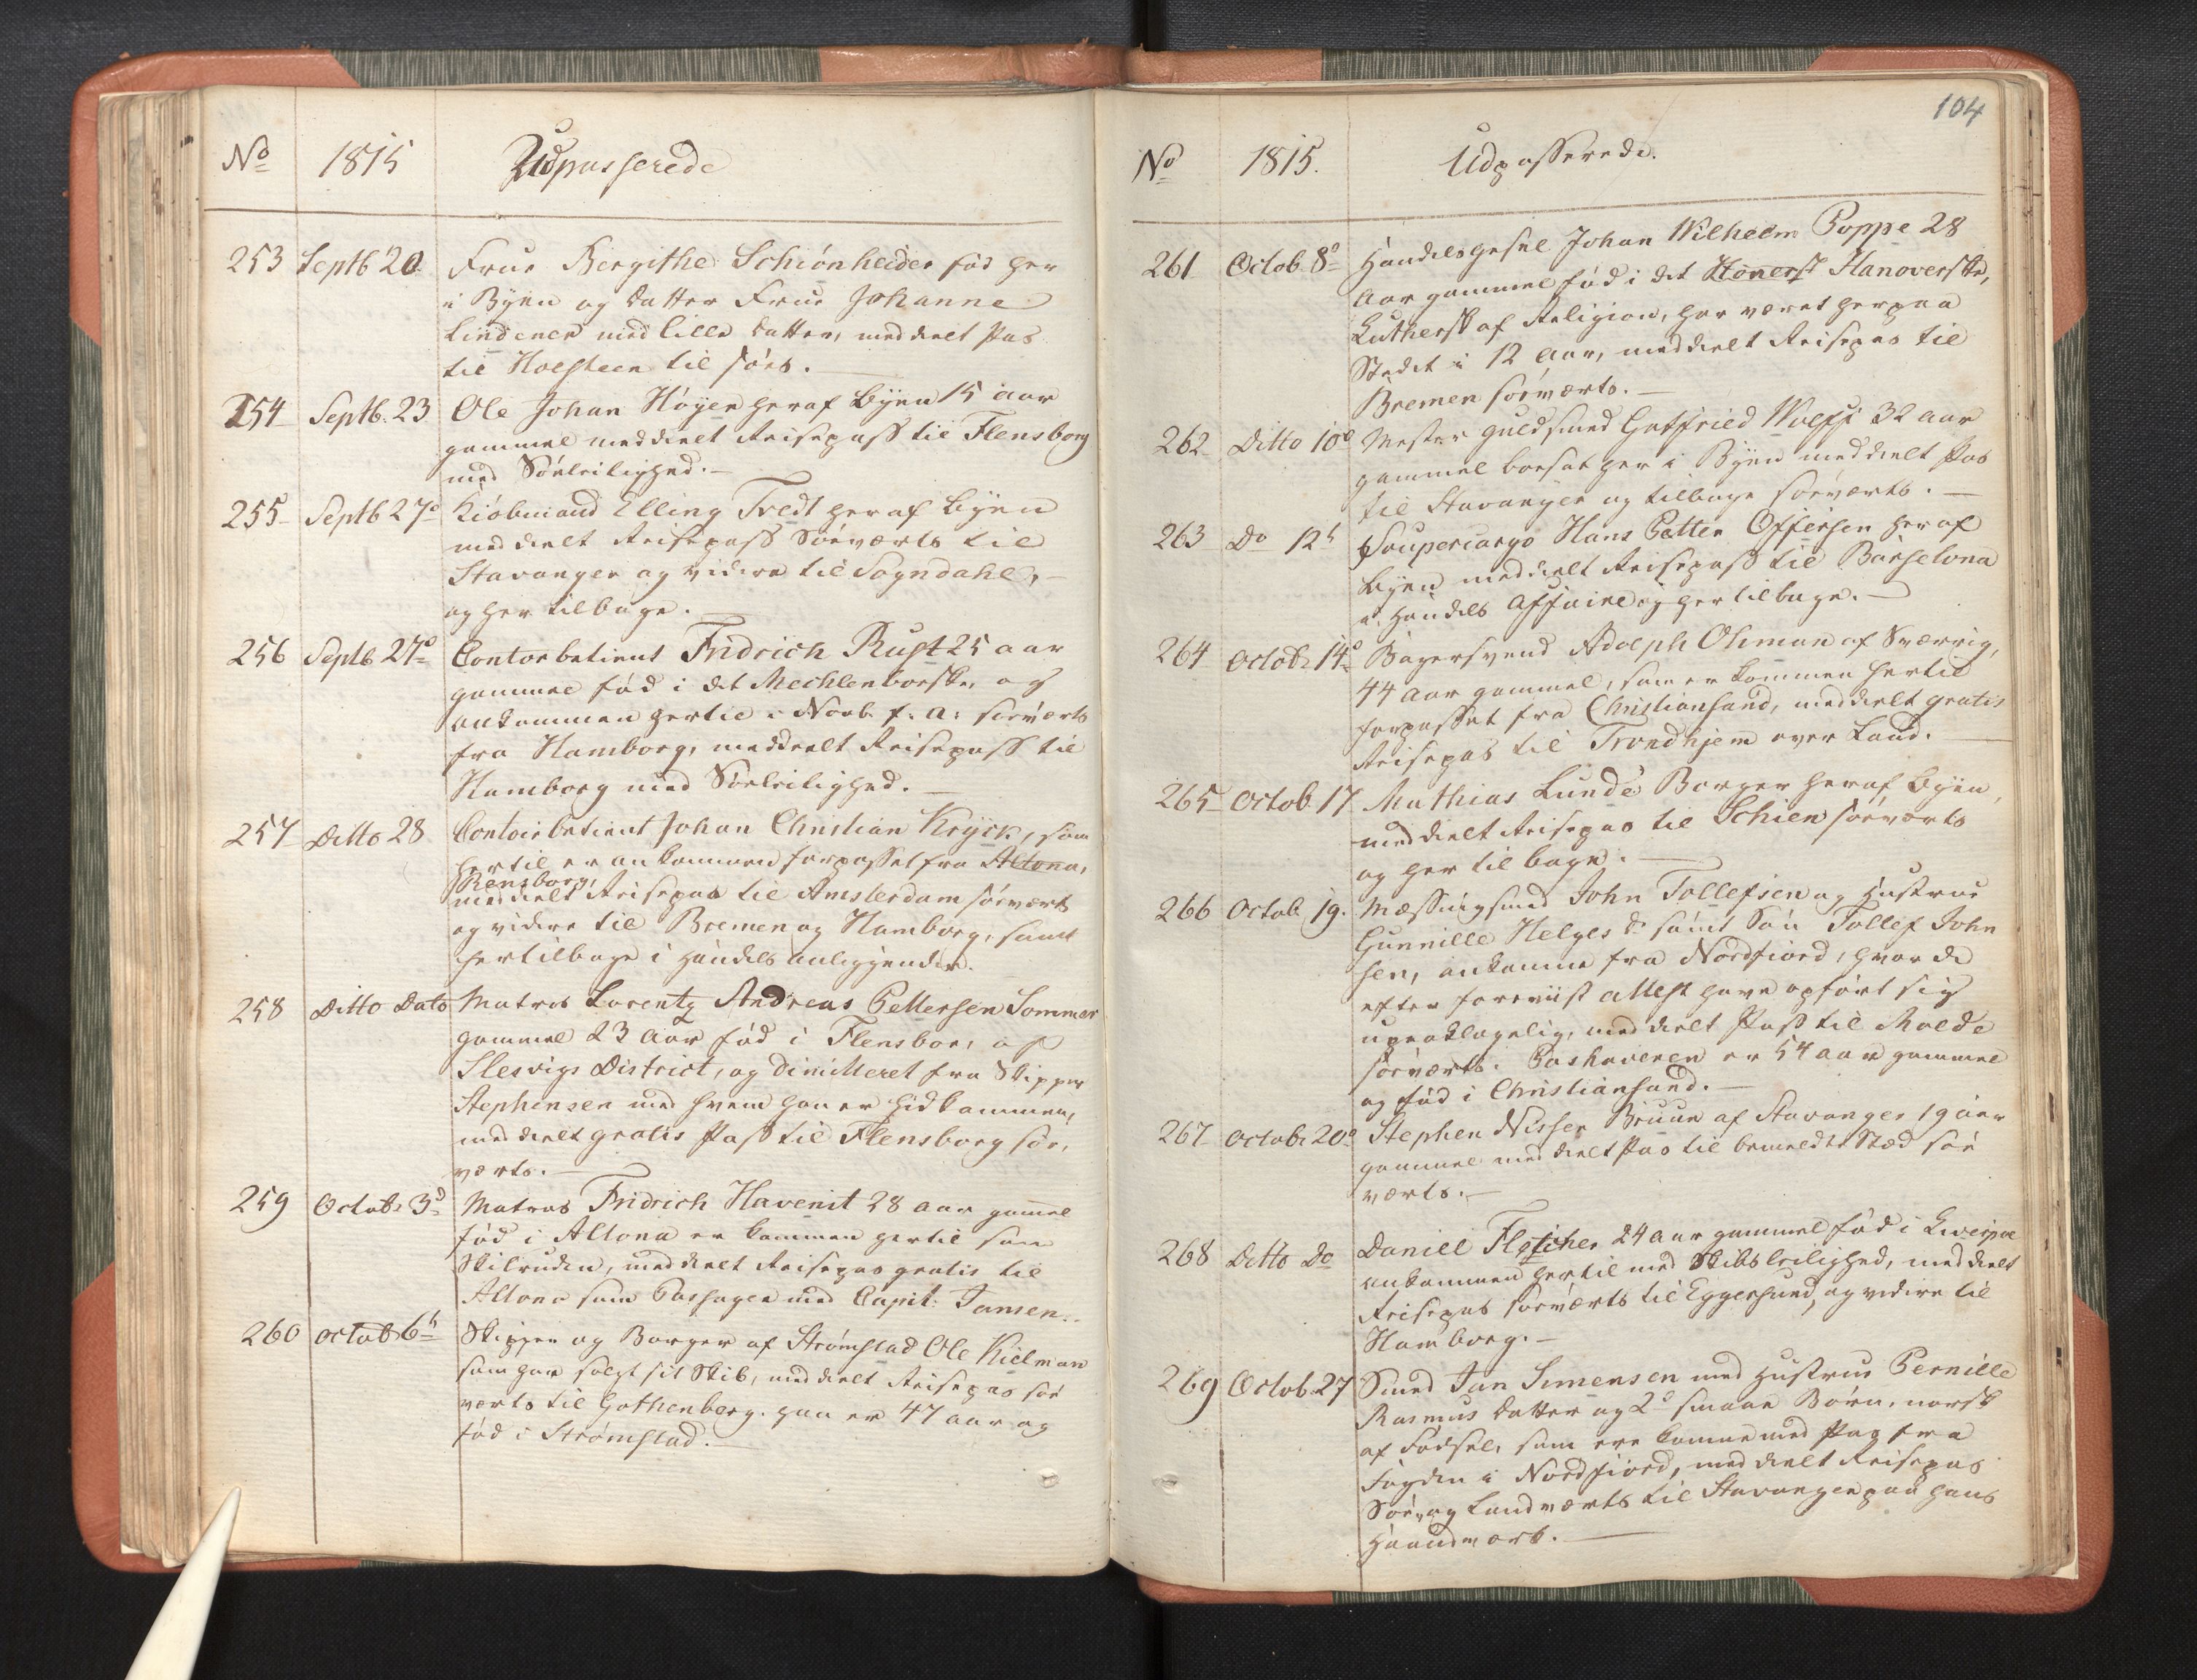 No 1815 Udpasserede
253 Septb 20 Frue Bergithe Schiönheider föd her
i Byen og datter Frue Johanne
Lindener med lille datter, meddeelt Pas
til Holsteen til söes.
254 Septb. 23 Ole Johan Höyer her af Byen 15 aar
gammel meddeelt Reisepass til Flensborg
med Söeleilighed.
255 Septb 27de Kiöbmand Elling Tvedt her af Byen
meddeelt Reisepass Söeværts til
Stavanger og videre til Sogndahl,
og her tilbage.
256 Septb 27de Contorbetient Fridrich Rust 25 aar
gammel föd i det Mechlenborske, og
ankommen hertil i Novb. f. a. söeværts
fra Hamborg, meddeelt Reisepass til
Hamborg med Söeleilighed.
257 Ditto 28 Contoirbetient Johan Christian Krÿck, som
hertil er ankommen forpasset fra Altona,
Rensborg,
meddeelt Reisepas til Amsterdam söeværts
og videre til Bremen og Hamborg, samt
her tilbage i Handels anliggender.
258 Ditto Dato Matros Lorentz Andreas Pettersen Sommer
gammel 23 Aar föd i Flensbor, af
Slesvigs District, og dimitteret fra Skipper
Stephensen med hvem han er hidkommen,
meddeelt gratis Pass til Flensborg söe,
værts.
259 Octob. 3d Matros Fridrich Havenit 28 aar gamel
föd i Altona er kommen hertil som
Skibruden, meddeelt Reisepas gratis til
Altona som Passager med Capit: Jansen.
260 octob 6t Skipper og Borger af Strömstad Ole Kielman
som har solgt sit Skib, meddeelt Reisepas söe
værts til Gothenberg. han er 47 aar og
föd i Strömstad.
104
No 1815. Udpasserede.
261 Octob. 8de Handelsgesel Johan Wilhelm Poppe 28
Aar gammel föd i det Hanoverske,
Luthersk af Religion, har været her paa
Stedet i 12 aar, meddeelt Reisepas til
Bremen söeværts.
262 Ditto 10de Mester Guldsmed Gotfried Wulff 32 aar
gammel boesat her i Byen meddeelt Pas
til Stavanger og tilbage söeværts.
263 Do 12t Soupercargo Hans Petter Offersen her af
Byen meddeelt Reisepass til Barselona
i Handels Affaire og her tilbage.
264 Octob. 14de Bagersvend Adolph Ohman af Sverrig,
44 Aar gammel, som er kommen hertil
forpasset fra Christiansand, meddeelt gratis
Reisepas til Trondhjem over Land.
265 Octob. 17 Mathias Lunde Borger her af Byen,
meddeelt Reisepas til Schien söeværts
og her tilbage.
266 Octob. 19. Messingsmed John Tollefsen og Hustrue
Gunnille Helges dr samt Sön Tollef John
sen, ankomne fra Nordfiord, hvor de
efter foreviist Attest have opfört sig
upaaklagelig, meddeelt Pass til Molde
söeværts. Pashaveren er 54 aar gammel
og föd i Christiansund.
267 Octob. 20de Stephen Nisser Bruun af Stavanger 19 aar
gammel meddeelt Pas til bemeldte Stæd söe
værts.
268 Ditto Do Daniel Fletcher 24 aar gammel föd i Liverpoe
ankommen hertil med Skibsleilighed, meddeelt
Reisepas söeværts til Eggersund, og videre til
Hamborg.
269 Octob. 27 Smed Jan Simensen med Hustrue Pernille
Rasmus datter og 2de smaae Börn, norsk
af Födsel, som ere komne med Pas fra
Fogden i Nordfiord, meddeelt Reisepas
Söe, og Landværts til Stavanger paa hans
Haandværk.